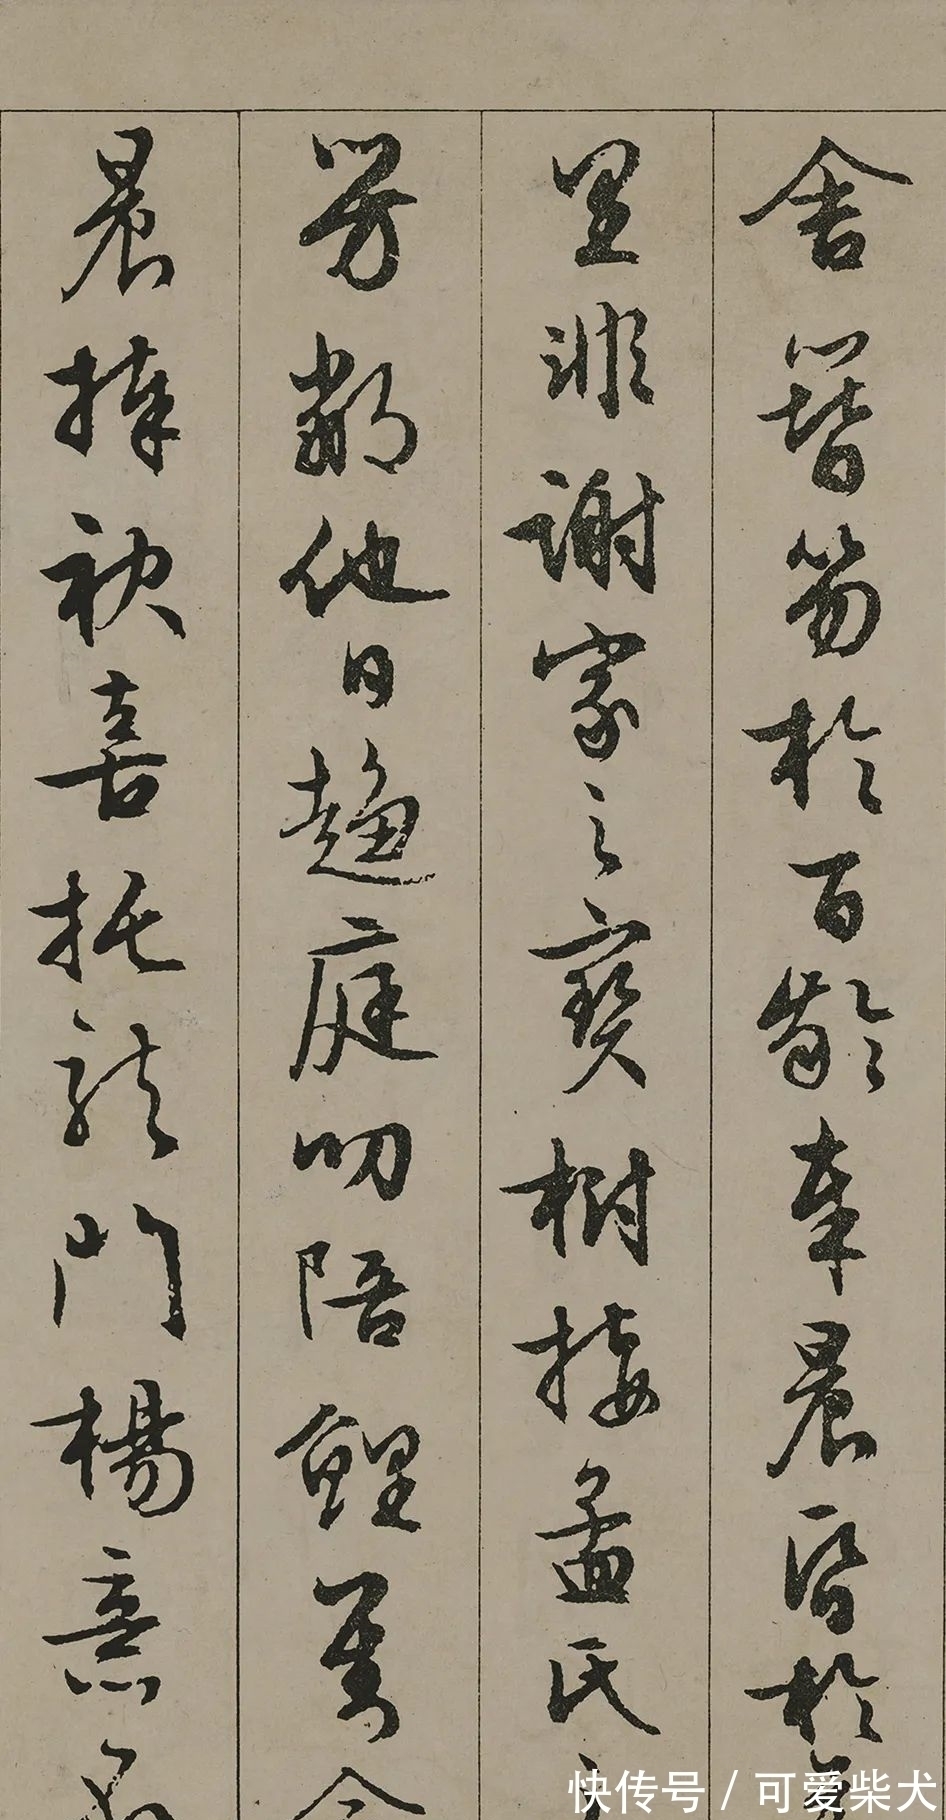 舍簪笏於百齡奉晨昏於萬
里非謝家之寶樹接孟氏之
芳鄰他日趨庭叨陪鯉對今
晨捧袂喜托龍門楊意不
快传号 / 可爱柴犬